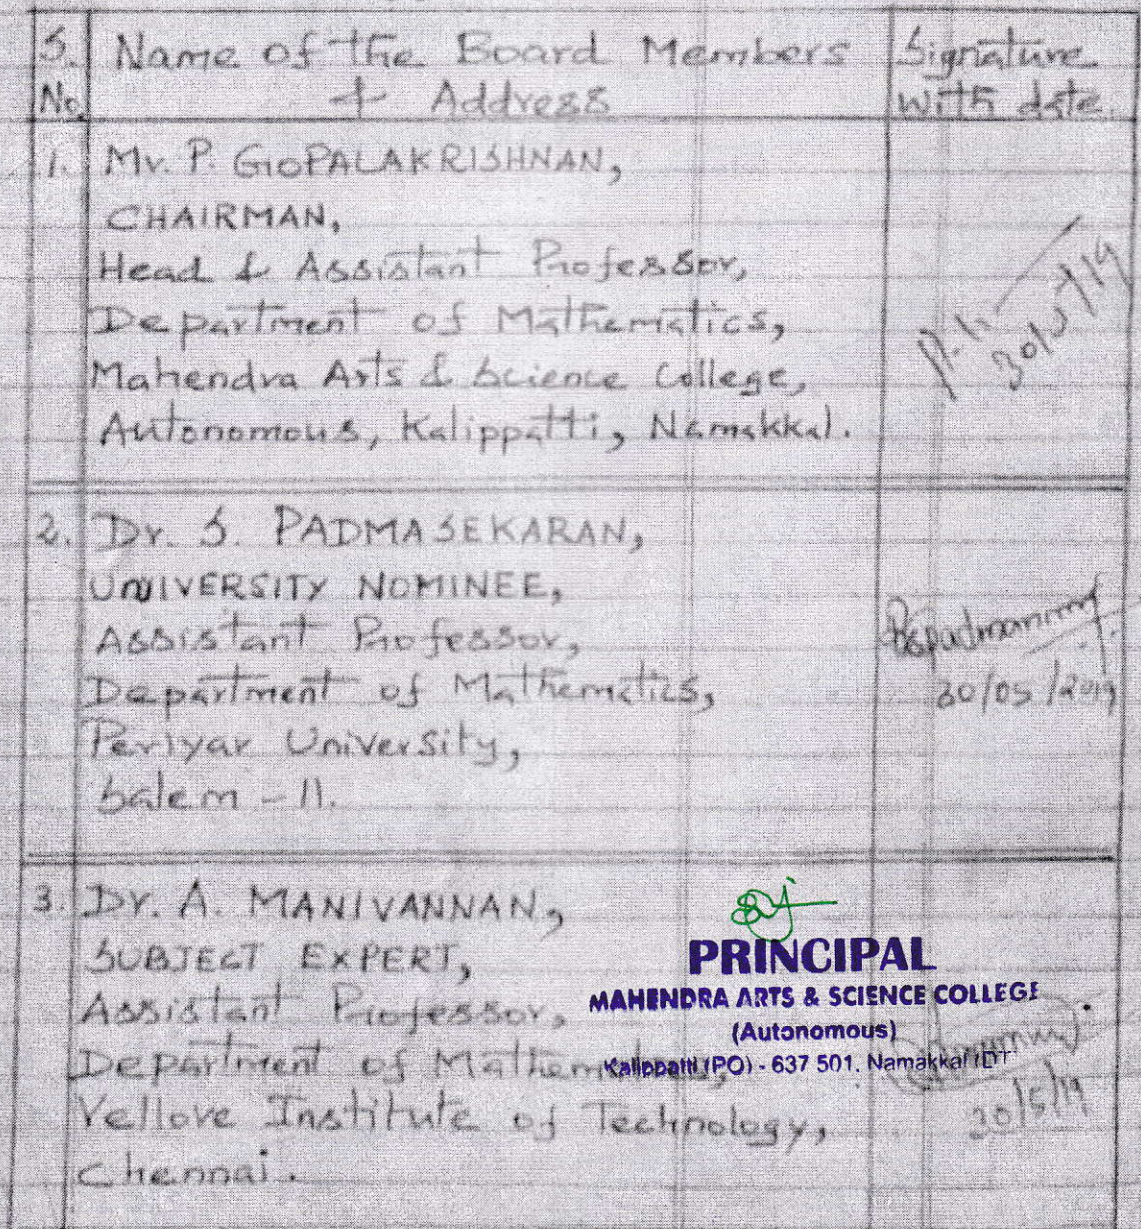 S. No. Name of the Board Members & Address Signature with date.
1. Mr. P. GOPALAKRISHNAN,
CHAIRMAN,
Head & Assistant Professor,
Department of Mathematics,
Mahendra Arts & Science College,
Autonomous, Kalippatti, Namakkal.
2. Dr. S. PADMASEKARAN,
UNIVERSITY NOMINEE,
Assistant Professor,
Department of Mathematics,
Periyar University,
Salem - 11.
30/05/2019
3. Dr. A. MANIVANNAN,
SUBJECT EXPERT,
Assistant Professor,
Department of Mathematics,
Vellore Institute of Technology,
Chennai.
30/5/19
PRINCIPAL
MAHENDRA ARTS & SCIENCE COLLEGE
(Autonomous)
Kalippatti (PO) - 637 501. Namakkal (DT